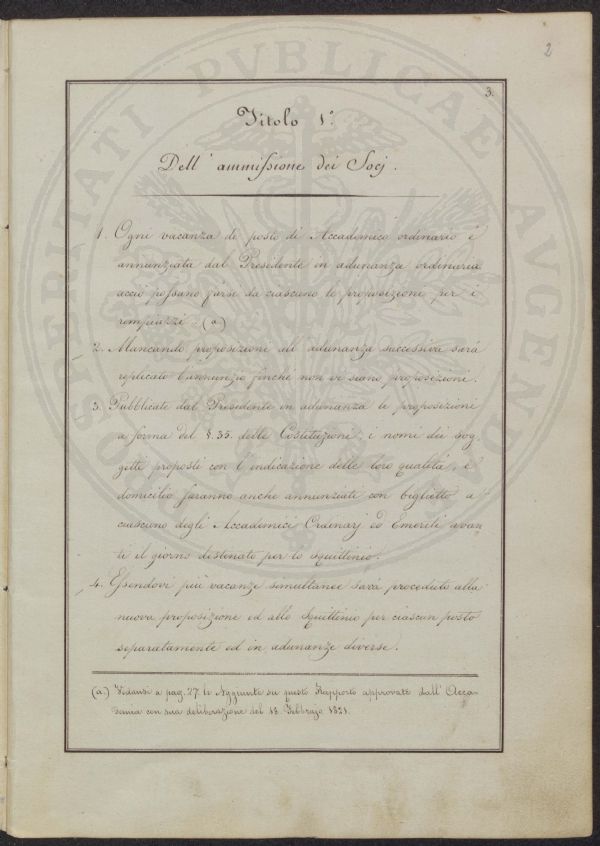 2
3.
Titolo 1º
Dell' ammissione dei Socj.
1. Ogni vacanza di posto di Accademico ordinario è
annunziata dal Presidente in adunanza ordinaria
acciò possano farsi da ciascuno le proposizioni per i
rimpiazzi. (a)
2. Mancando proposizioni all' adunanza successiva sarà
replicato l'annunzio finchè non vi siano proposizioni.
3. Pubblicate dal Presidente in adunanza le proposizioni
a forma del §. 35. delle Costituzioni, i nomi dei sog-
getti proposti con l' indicazione delle loro qualità, e
domicilio saranno anche annunziati con biglietto a
ciascuno degli Accademici Ordinarj ed Emeriti avan-
ti il giorno destinato per lo squittinio.
4. Essendovi più vacanze simultanee sarà proceduto alla
nuova proposizione ed allo Squittinio per ciascun posto
separatamente ed in adunanze diverse.
(a) Vedansi a pag. 27. le Aggiunte su questo Rapporto approvate dall' Acca-
demia con sua deliberazione del 18. Febbrajo 1821.
PROSPERITATI PVBLICAE AVGENDAE